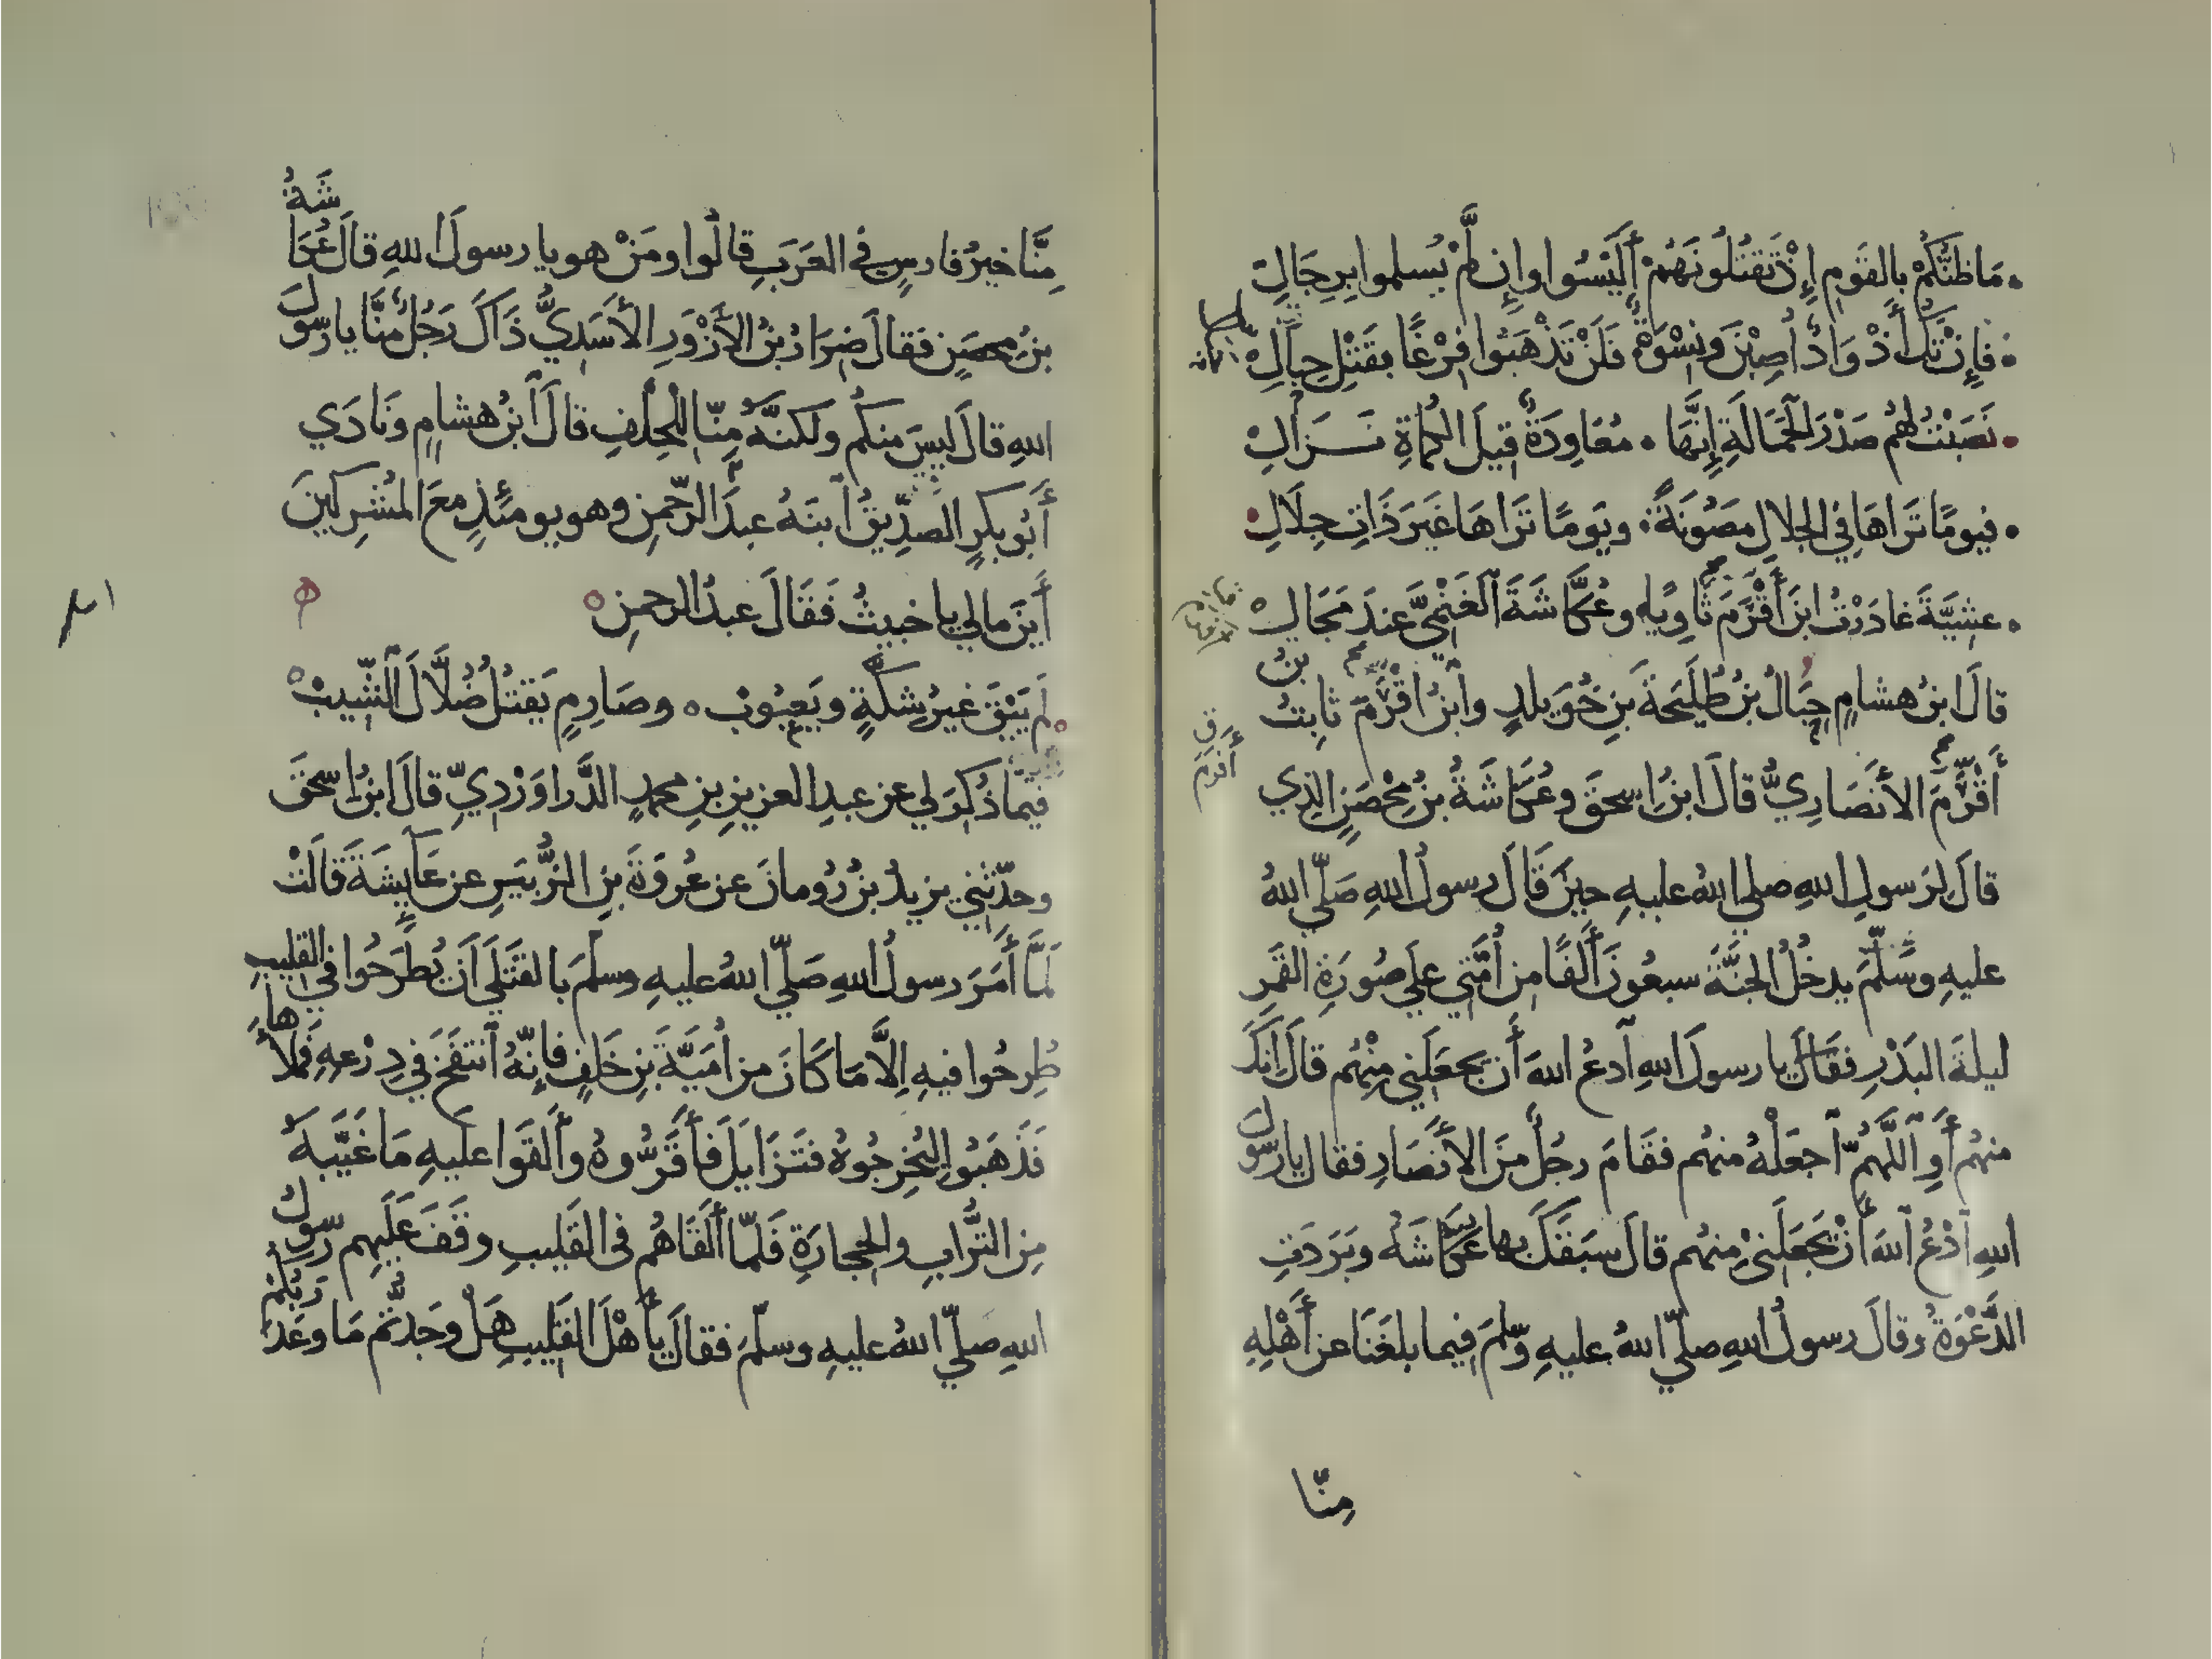 مَا ظَنُّكُمْ بِالقَومِ إِذْ تَقتُلُونَهُمْ أَلَيْسُوا وإِن لَّمْ يُسلموا بِرِجَالِ
فَإِنْ تَكُ أَذْوَادٌ أُصِبْنَ وَنِسْوَةٌ فَلَنْ تَذْهَبُوا فِرْغًا بقَتْلِ حِبَالِ
نَصَبْتُ لهُم صَدْرَ الحَمَالَةِ إِنَّهَا مُعَاوِدَةٌ قِيلَ الكُمَاةِ نَـزَالِ
فيومًا تَرَاهَا فِي الجِلَالِ مَصُونَةً ويَومًا تَرَاهَا غَيرَ ذَاتِ جِلَالِ
عشِيَّةَ غادَرْتُ ابنَ أَقْرَمَ ثَاوِيًا وعُكَّاشَةَ الغَنْمِيَّ عِندَ مَجَالِ
قالَ ابنُ هشامٍ حِبَالُ بنُ طُلَيحَةَ بنِ خُوَيلدٍ وابْنُ أقْرَمَ ثابِتُ بنُ
أَقْرَمَ الأَنصَارِيُّ قالَ ابنُ اسحقَ وعُكَّاشَةُ بنُ مِحْصَنٍ الذِي
قالَ لِرَسولِ اللهِ صلي اللهُ عليهِ حِينَ قَالَ رسولُ اللهِ صَلَّي اللهُ
عليهِ وسَلَّمَ يدخُلُ الجنَّةَ سبعُونَ أَلفًا مِن أُمَّتِي عَلَي صُورَةِ القَمَرِ
ليلةَ البَدْرِ فقَالَ يا رسولَ اللهِ ادعُ اللهَ أَن يجعَلَنِي مِنْهُم قالَ إِنكَ
منهُم أَوِ اللَّهُمَّ اجعَلْهُ منهُم فقَامَ رجُلٌ مِنَ الأَنصَارِ فقال يا رسُولَ
اللهِ ادْعُ اللهَ أَنْ يَجْعَلَنِيْ مِنهُم قالَ سبَقَكَ بها عكَّاشَهُ وبَرَدَتِ
الدَّعْوَةُ وقالَ رسولُ اللهِ صلَّي اللهُ عليهِ وسَّلمَ فِيما بلغَنَا عن أَهْلِهِ
مِنّا
أقرم
مِنَّا خيرُ فارسٍ في العَرَبِ قالُوا ومَنْ هو يا رسولَ اللهِ قالَ عُكَاشَةُ
بنُ مِحصَنٍ فقالَ ضِرَارُ بنُ الأَزْوَرِ الأَسَدِيُّ ذَاكَ رَجُلٌ مِنَّا يا رسُولَ
اللهِ قالَ ليسَ منكُم ولكنَّهُ مِنّا للحِلْفِ قالَ ابنُ هشامٍ ونَادَي
أَبُو بكرٍ الصِّدِّيقُ ابنَهُ عبدَ الرّحْمنِ وهو يومئِذٍ معَ المُشرِكينَ
أَينَ مالي يا خبيثُ فقَالَ عبدُ الرحمنِ
لَم يَبْقَ غيرُ شِكَّةٍ ويَعبُوبْ وصَارِمٍ يَقتُلُ ضُلَّالَ الشِّيبْ
فيمَا ذُكِرَ لي عن عبدِ العزيزِ بنِ محمدٍ الدَّرَاوَرْدِيِّ قالَ ابنُ اسحٰقَ
وحدّثنِي يزيدُ بنُ رُومانَ عن عُروَةَ بنِ الزُّبَيرِ عن عَآيِشَةَ قالَتْ
لَمَّا أَمَرَ رسولُ اللهِ صَلّي اللهُ عليهِ وسلّمَ بالقَتْلَي أَن يُطرَحُوا في القليبِ
طُرِحُوا فيهِ اِلَّا مَا كَانَ من أُمَيَّةَ بنِ خَلَفٍ فإِنّهُ انتفَخَ في دِرْعهِ فَمَلأَهَا
فَذَهَبُوا ليُخرِجُوهُ فتَزَايَلَ فأَقَرُّوهُ وأَلقَوا عليهِ مَا غَيَّبَهُ
مِن التُّرَابِ والحِجارَةِ فَلمّا أَلقَاهُم في القَلِيبِ وقَفَ عَلَيهِم رسُولُ
اللهِ صلّي اللهُ عليهِ وسلّمَ فقالَ يأَهْلَ القَلِيبِ هَلْ وجَدتُّم مَا وعَدَ رَبُّكُمْ